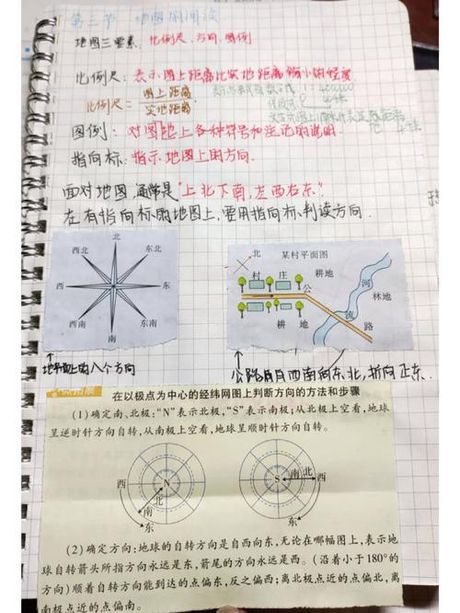 第二节 地图的阅读
地图三要素：比例尺、方向、图例
比例尺：表示图上距离比实地距离缩小的程度
比例尺= 图上距离
实地距离
图例：对图地上各种符号和注记的说明
指向标：指示地图上的方向.
面对地图，通常是"上北下南，左西右东."
在有指向标的地图上，要用指向标判读方向.
北
西北 东北
西 东
西南 东南
南
北 某村平面图
村 庄 耕地
公 河
林地
耕 地 流
路
地平面上的八个方向
公路由西南向东北，折向正东.
在以极点为中心的经纬网图上判断方向的方法和步骤
(1)确定南、北极："N"表示北极，"S"表示南极；从北极上空看，地球
呈逆时针方向自转，从南极上空看，地球呈顺时针方向自转。
西 N 北 南 东
S 南 北 西 东
(2)确定方向：地球的自转方向是自西向东，无论在哪幅图上，表示地
球自转箭头所指方向永远是东，箭尾的方向永远是西。(沿着小于180°的
方向)顺着自转方向能到达的点偏东，反之偏西；离北极点近的点偏北，离
南极点近的点偏南。